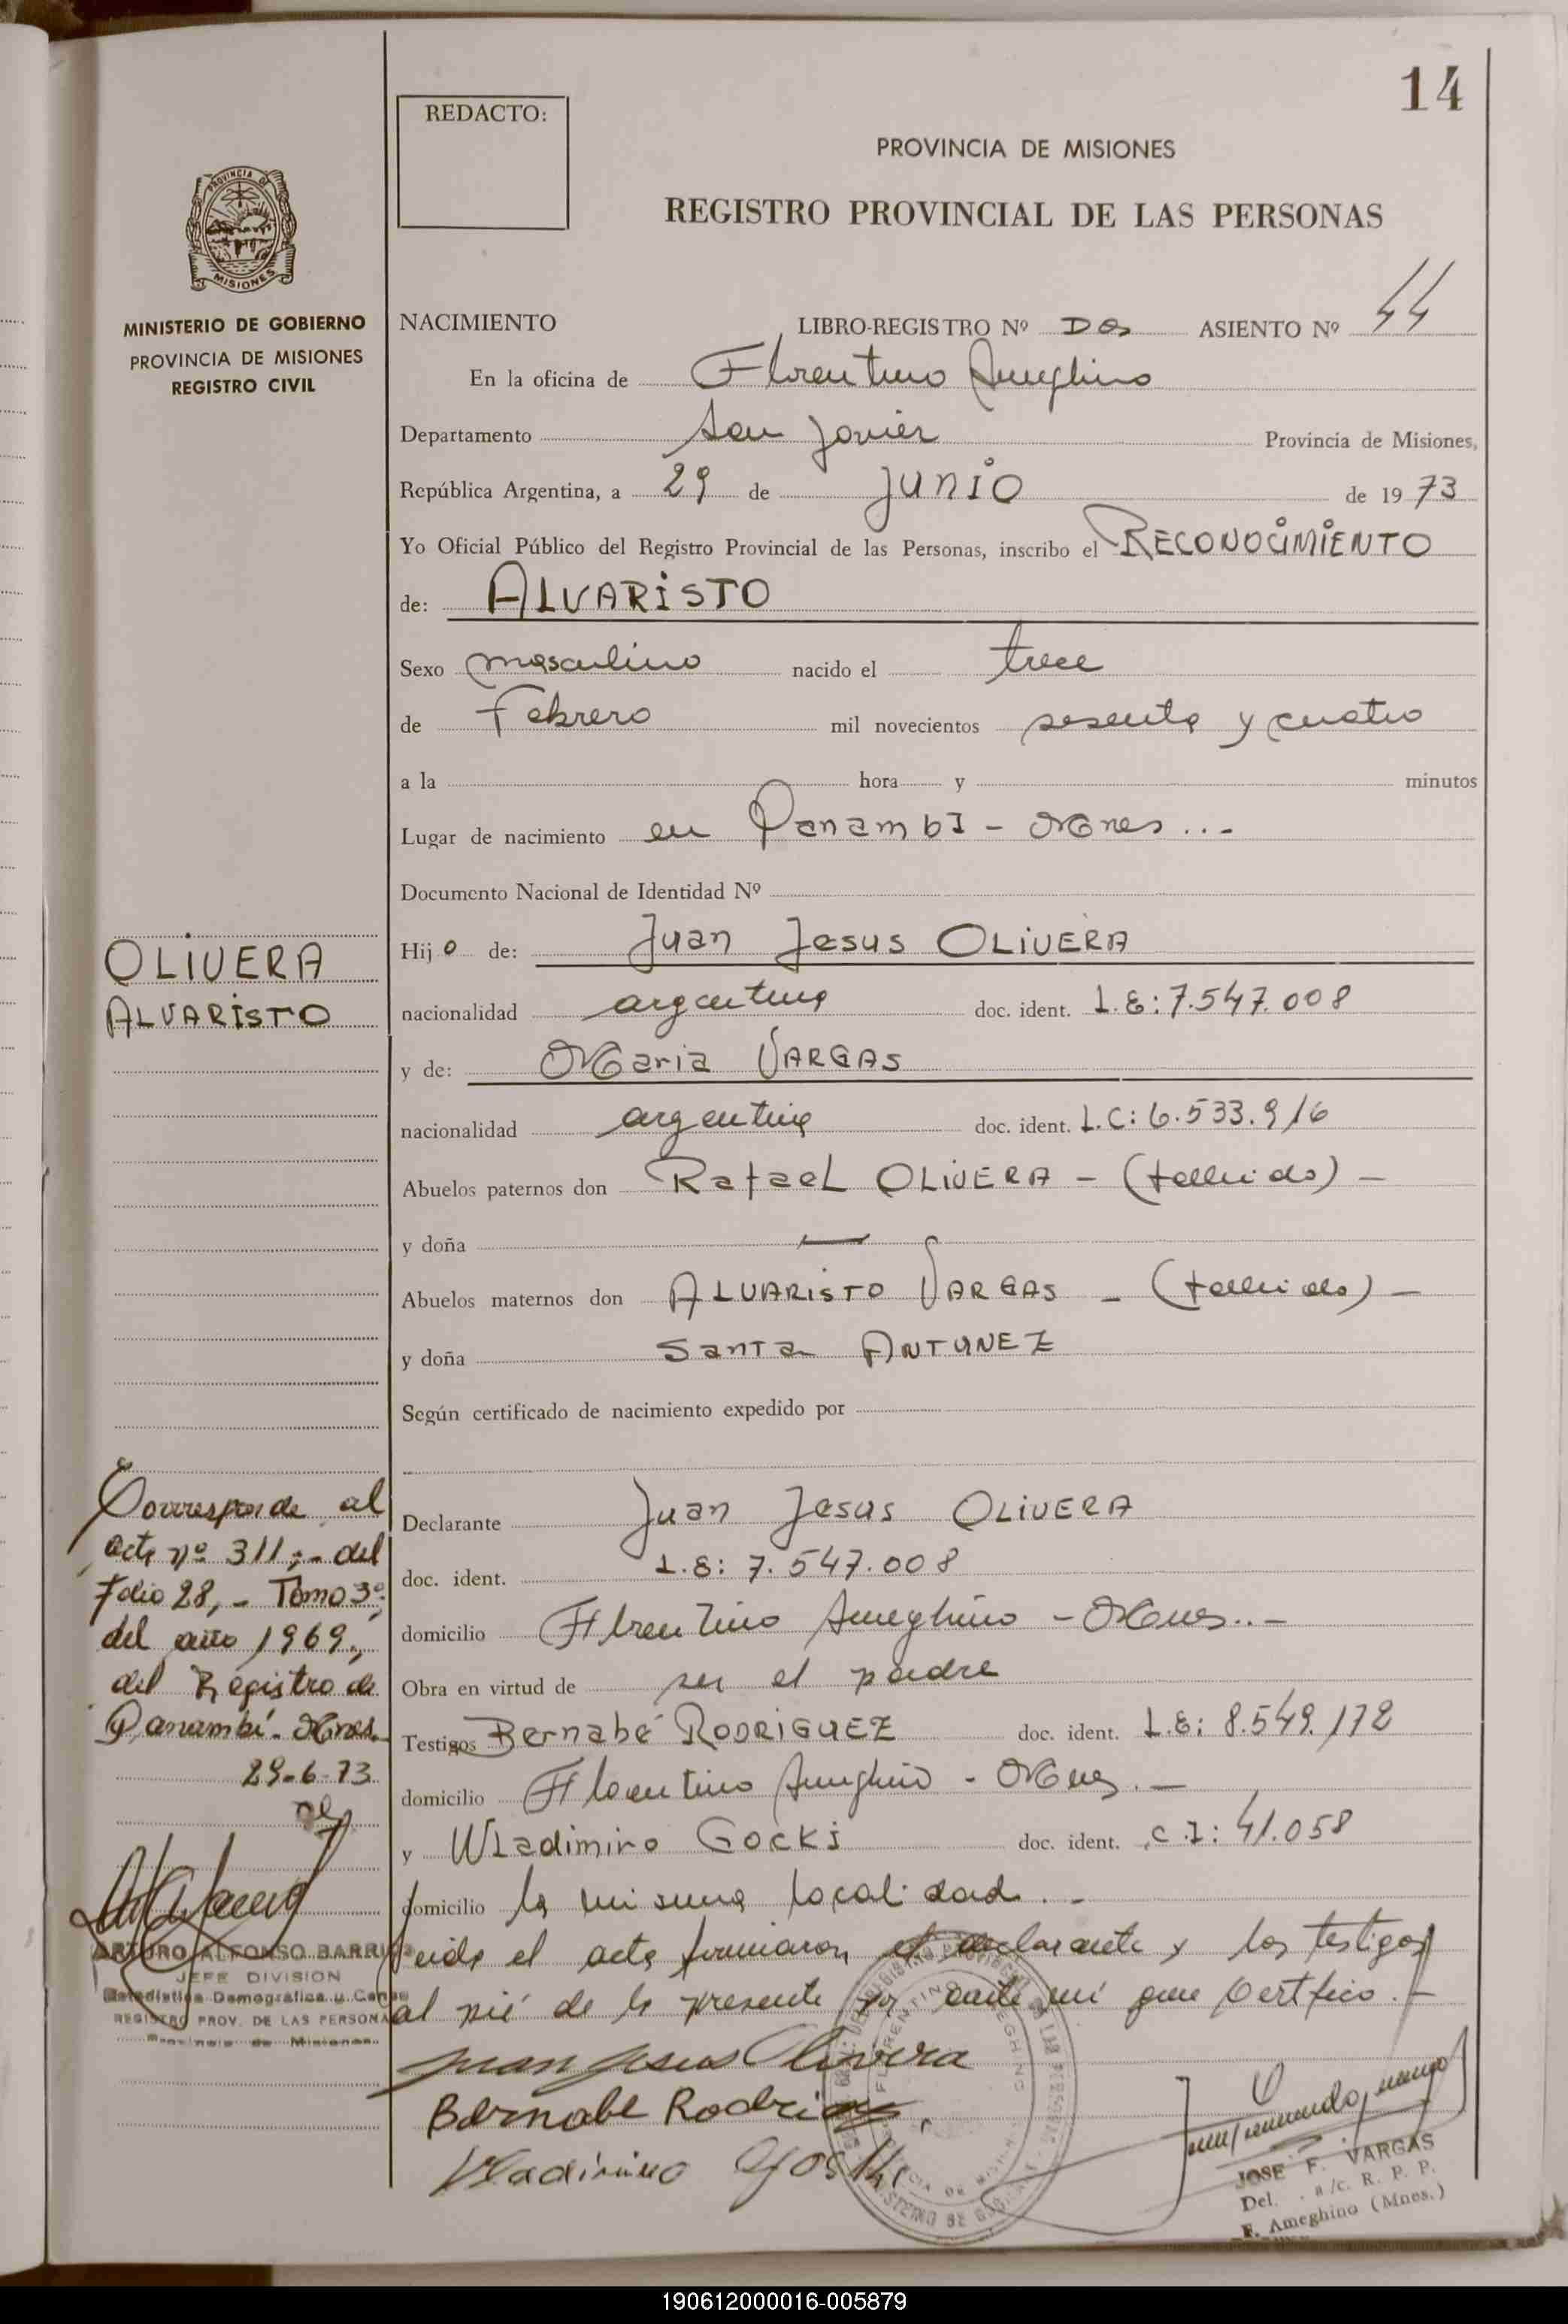 14
REDACTO:
PROVINCIA DE MISIONES
REGISTRO PROVINCIAL DE LAS PERSONAS
PROVINCIA DE
MISIONES
MINISTERIO DE GOBIERNO
PROVINCIA DE MISIONES
REGISTRO CIVIL
NACIMIENTO LIBRO-REGISTRO Nº DOS ASIENTO Nº 44
En la oficina de Florentino Ameghino
Departamento San Javier Provincia de Misiones,
República Argentina, a 29 de Junio de 1973
Yo Oficial Público del Registro Provincial de las Personas, inscribo el RECONOCIMIENTO
de: ALVARISTO
Sexo masculino nacido el trece
de Febrero mil novecientos sesenta y cuatro
a la hora y minutos
Lugar de nacimiento en Panambi - Mnes ...-
Documento Nacional de Identidad Nº
OLIVERA
ALVARISTO
Hijo de: Juan Jesus OLIVERA
nacionalidad argentina doc. ident. L.E: 7.547.008
y de: Maria VARGAS
nacionalidad argentina doc. ident. L.C: 6.533.916
Abuelos paternos don Rafael OLIVERA - (fallecido) -
y doña —
Abuelos maternos don ALVARISTO VARGAS - (fallecido) -
y doña Santa ANTUNEZ
Según certificado de nacimiento expedido por
Corresponde al
acta nº 311;- del
Folio 28,- Tomo 3º;
del año 1969.,
del Registro de
Panambí-Mnes.
29-6-73
Declarante Juan Jesus OLIVERA
doc. ident. L.E: 7.547.008
domicilio Florentino Ameghino - Mnes..-
Obra en virtud de ser el padre
Testigos Bernabé RODRIGUEZ doc. ident. L.E: 8.549.172
domicilio Florentino Ameghino - Mnes.-
y Wladimiro GOCKI doc. ident. C.I: 41.058
domicilio la misma localidad.-
Leida el acta firmaron el declarante y los testigos
al pié de la presente por ante mi que certfico.-
ARTURO ALFONSO BARRI
JEFE DIVISION
Estadistica Demografica y Censo
REGISTRO PROV. DE LAS PERSONA
Provincia de Misiones
Juan Jesus Olivera
Bernabe Rodri
JOSE F. VARGAS
Del. a/c. R. P. P.
F. Ameghino (Mnes.)
190612000016-005879